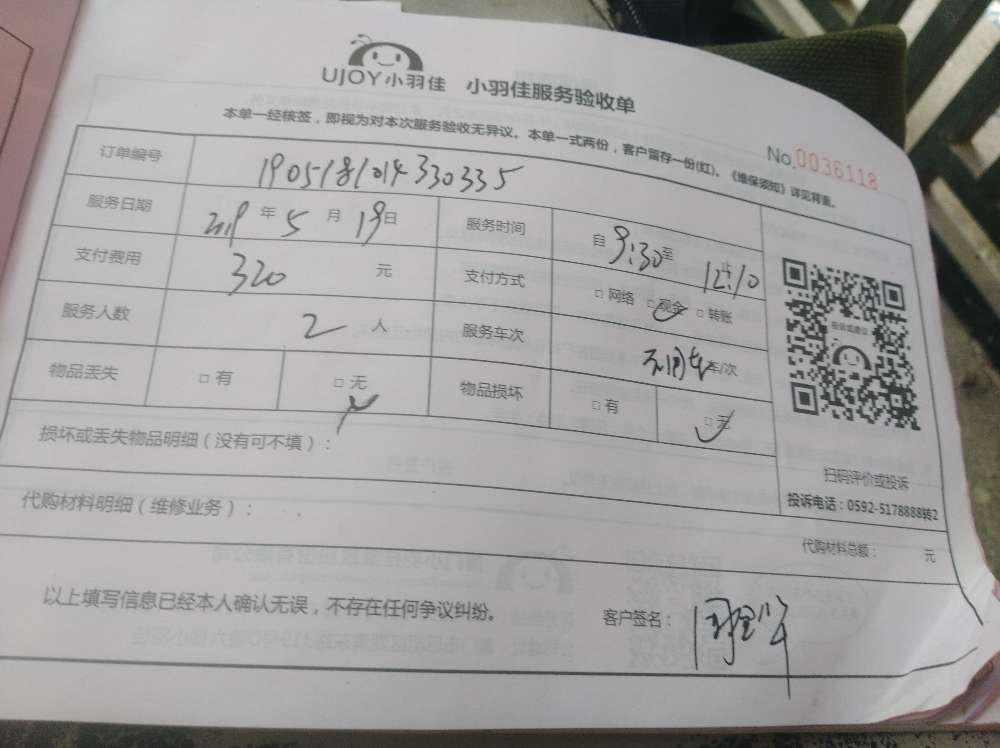 UJOY小羽佳 小羽佳服务验收单
本单一经核签，即视为对本次服务验收无异议。本单一式两份，客户留存一份(红)。《维保须知》详见背面。
No.0036118
订单编号 1905181014330335
服务日期 2019年5月19日 服务时间 自9:30至12:10
支付费用 320元 支付方式 □网络 □现金 □转账
服务人数 2人 服务车次 车/次
物品丢失 □有 □无 物品损坏 □有 □无
损坏或丢失物品明细（没有可不填）：
扫码评价或投诉
投诉电话：0592-5178888转2
代购材料明细（维修业务）：
代购材料总额： 元
以上填写信息已经本人确认无误，不存在任何争议纠纷。 客户签名：